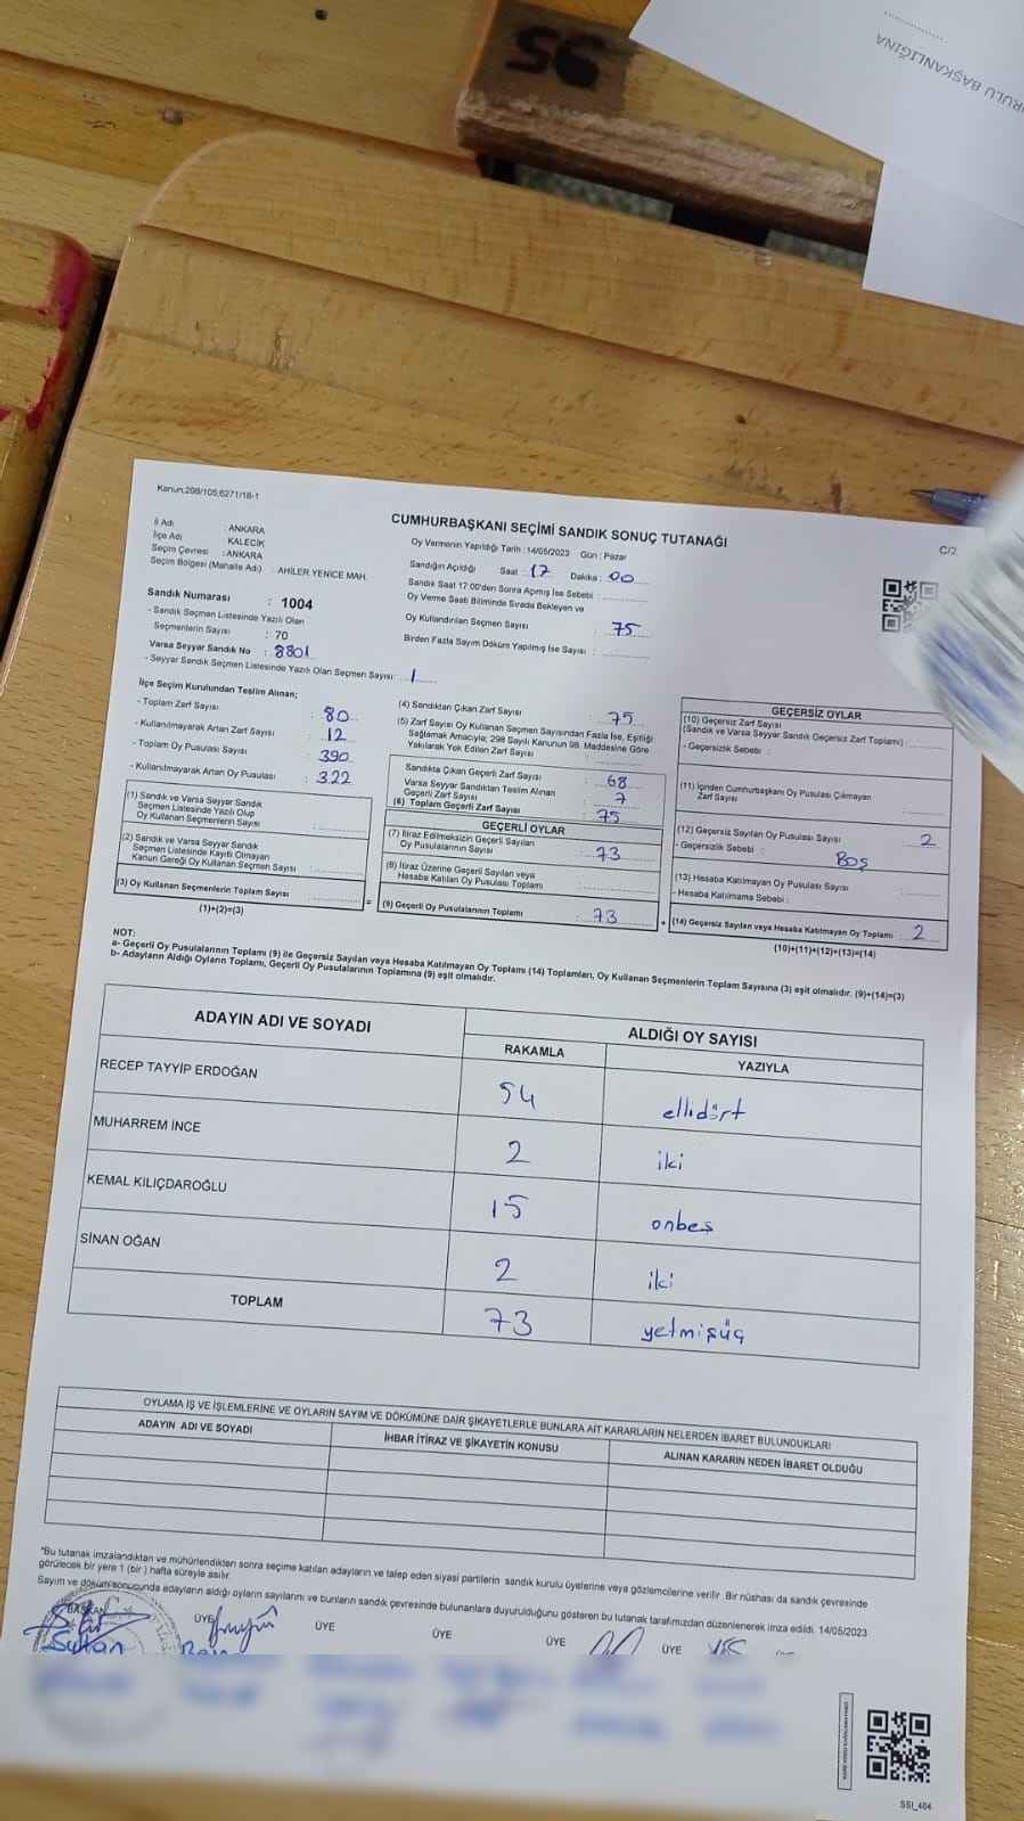 35
RULU BAŞKANLIĞINA
Kanun:298/105,6271/18-1
CUMHURBAŞKANI SEÇİMİ SANDIK SONUÇ TUTANAĞI
C/2
İl Adı ANKARA
İlçe Adı KALECİK
Seçim Çevresi : ANKARA
Seçim Bölgesi (Mahalle Adı) : AHİLER YENİCE MAH.
Oy Vermenin Yapıldığı Tarih : 14/05/2023 Gün : Pazar
Sandığın Açıldığı Saat : 17 Dakika : 00
Sandık Saat 17:00'den Sonra Açmış İse Sebebi :
Oy Verme Saati Bitiminde Sırada Bekleyen ve
Oy Kullandırılan Seçmen Sayısı : 75
Birden Fazla Sayım Döküm Yapılmış İse Sayısı :
Sandık Numarası : 1004
- Sandık Seçmen Listesinde Yazılı Olan
Seçmenlerin Sayısı : 70
Varsa Seyyar Sandık No : 8801
- Seyyar Sandık Seçmen Listesinde Yazılı Olan Seçmen Sayısı : 1
İlçe Seçim Kurulundan Teslim Alınan;
- Toplam Zarf Sayısı : 80
- Kullanılmayarak Artan Zarf Sayısı : 12
- Toplam Oy Pusulası Sayısı : 390
- Kullanılmayarak Artan Oy Pusulası : 322
(1) Sandık ve Varsa Seyyar Sandık
Seçmen Listesinde Yazılı Olup
Oy Kullanan Seçmenlerin Sayısı
(2) Sandık ve Varsa Seyyar Sandık
Seçmen Listesinde Kayıtlı Olmayan
Kanun Gereği Oy Kullanan Seçmen Sayısı
(3) Oy Kullanan Seçmenlerin Toplam Sayısı
(1)+(2)=(3)
=
(4) Sandıktan Çıkan Zarf Sayısı : 75
(5) Zarf Sayısı Oy Kullanan Seçmen Sayısından Fazla İse, Eşitliği
Sağlamak Amacıyla; 298 Sayılı Kanunun 98. Maddesine Göre
Yakılarak Yok Edilen Zarf Sayısı :
Sandıkta Çıkan Geçerli Zarf Sayısı : 68
Varsa Seyyar Sandıktan Teslim Alınan
Geçerli Zarf Sayısı : 7
(6) Toplam Geçerli Zarf Sayısı : 75
GEÇERLİ OYLAR
(7) İtiraz Edilmeksizin Geçerli Sayılan
Oy Pusulalarının Sayısı : 73
(8) İtiraz Üzerine Geçerli Sayılan veya
Hesaba Katılan Oy Pusulası Toplamı :
(9) Geçerli Oy Pusulalarının Toplamı : 73
+
GEÇERSİZ OYLAR
(10) Geçersiz Zarf Sayısı
(Sandık ve Varsa Seyyar Sandık Geçersiz Zarf Toplamı) :
- Geçersizlik Sebebi :
(11) İçinden Cumhurbaşkanı Oy Pusulası Çıkmayan
Zarf Sayısı
(12) Geçersiz Sayılan Oy Pusulası Sayısı : 2
- Geçersizlik Sebebi : Boş
(13) Hesaba Katılmayan Oy Pusulası Sayısı
- Hesaba Katılmama Sebebi :
(14) Geçersiz Sayılan veya Hesaba Katılmayan Oy Toplamı : 2
(10)+(11)+(12)+(13)=(14)
NOT:
a- Geçerli Oy Pusulalarının Toplamı (9) ile Geçersiz Sayılan veya Hesaba Katılmayan Oy Toplamı (14) Toplamları, Oy Kullanan Seçmenlerin Toplam Sayısına (3) eşit olmalıdır. (9)+(14)=(3)
b- Adayların Aldığı Oyların Toplamı, Geçerli Oy Pusulalarının Toplamına (9) eşit olmalıdır.
ADAYIN ADI VE SOYADI
ALDIĞI OY SAYISI
RAKAMLA YAZIYLA
RECEP TAYYİP ERDOĞAN 54 ellidört
MUHARREM İNCE 2 iki
KEMAL KILIÇDAROĞLU 15 onbeş
SİNAN OĞAN 2 iki
TOPLAM 73 yetmişüç
OYLAMA İŞ VE İŞLEMLERİNE VE OYLARIN SAYIM VE DÖKÜMÜNE DAİR ŞİKAYETLERLE BUNLARA AİT KARARLARIN NELERDEN İBARET BULUNDUKLARI
ADAYIN ADI VE SOYADI İHBAR İTİRAZ VE ŞİKAYETİN KONUSU ALINAN KARARIN NEDEN İBARET OLDUĞU
*Bu tutanak imzalandıktan ve mühürlendikten sonra seçime katılan adayların ve talep eden siyasi partilerin sandık kurulu üyelerine veya gözlemcilerine verilir. Bir nüshası da sandık çevresinde
görülecek bir yere 1 (bir) hafta süreyle asılır.
Sayım ve döküm sonucunda adayların aldığı oyların sayılarını ve bunların sandık çevresinde bulunanlara duyurulduğunu gösteren bu tutanak tarafımızdan düzenlenerek imza edildi. 14/05/2023
BAŞKAN ÜYE ÜYE ÜYE ÜYE ÜYE
Sultan
SSİ_404